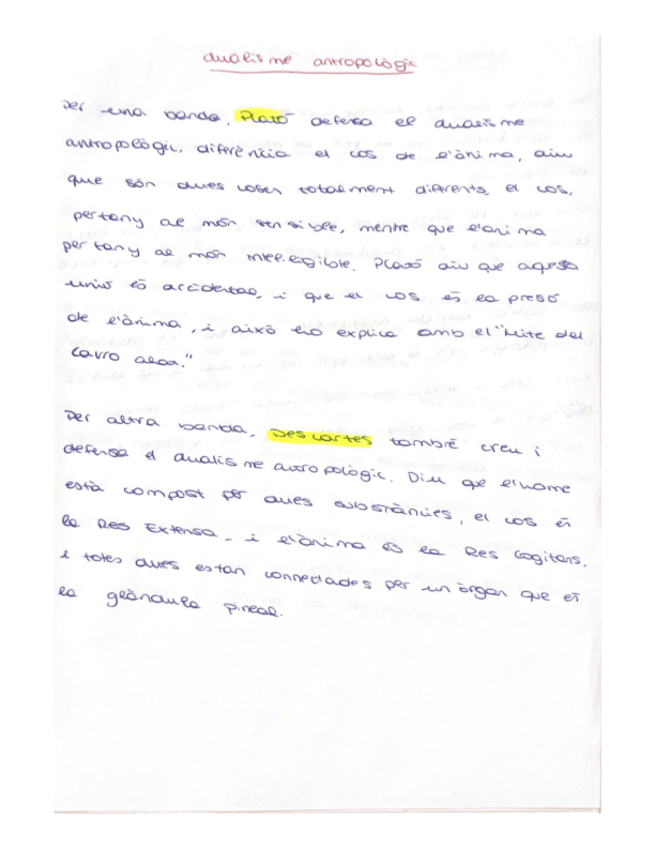 dualisme antropològic
Per una banda, Plató defensa el dualisme
antropològic, diferència el cos de l'ànima, diu
que són dues coses totalment diferents, el cos,
pertany al món sensible, mentre que l'ànima
pertany al món intel·ligible. Plató diu que aquesta
unió és accidental, i que el cos és la presó
de l'ànima, i això ho explica amb el "Mite del
carro alat."
Per altra banda, Descartes també creu i
defensa el dualisme antropològic. Diu que l'home
està compost per dues substàncies, el cos és
la Res Extensa, i l'ànima és la Res Cogitans.
i totes dues estan connectades per un òrgan que és
la glàndula pineal.